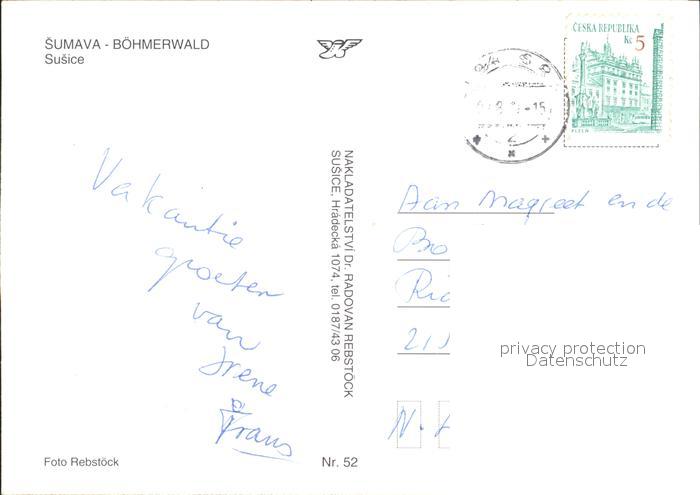 ŠUMAVA - BÖHMERWALD
Sušice
ČESKÁ REPUBLIKA
Kč 5
PLZEŇ
Vakantie
groeten
van
Irene
&
Frans
NAKLADATELSTVÍ Dr. RADOVAN REBSTÖCK
SUŠICE, Hrádecká 1074, tel. 0187/43 06
Aan Magreet en de
Bro
Ric
privacy protection
Datenschutz
N.
Foto Rebstöck
Nr. 52